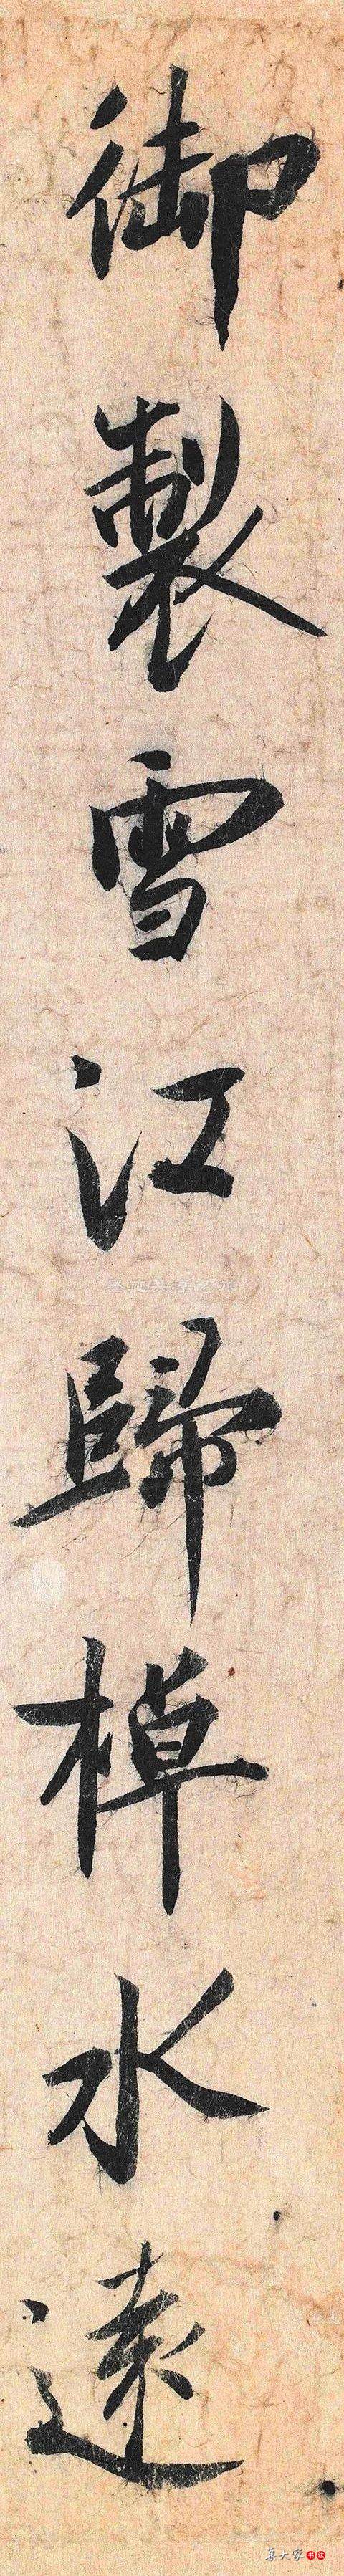 御製雪江歸棹水遠
集大家
书法